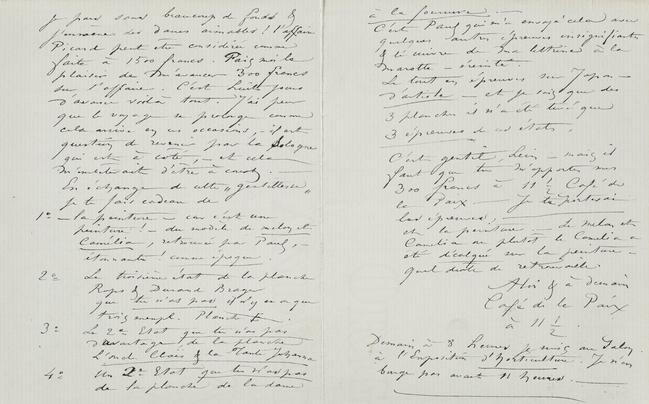 je pars sans beaucoup de fonds &
j'emmène des dames aimables ! l'affaire
Picard peut être considérée comme
faite à 1500 francs. Fais moi le
plaisir de m'avancer 300 francs
sur l'affaire. C'est huit jours
d'avance voilà tout. J'ai peur
que le voyage se prolonge comme
cela arrive en ces occasions, il est
question de revenir par la Sologne
qui est à côté, – et cela
m'embêterait d'être à court.
En échange de cette "gentillesse"
je te fais cadeau de
1º – la peinture – car c'est une
peinture ! – du modèle de melon et
Camélia, retrouvé par Paul, –
étonnante ! comme époque.
2º Le troisième état de la planche
Rops & Durand Brager
que tu n'as pas il n'y en a que
trois exempl. Planche
3º Le 2e Etat que tu n'as pas
davantage de la planche
L'oncle Claes & la Tante Johanna
4º Un 2e Etat que tu n'as pas
de la planche de la dame
à la fourrure. –
C'est Paul qui m'a envoyé cela avec
quelques autres épreuves insignifiantes
& le cuivre de ma lettrine à la
marotte –
Le tout en épreuves sur Japon –
d'artiste – et je sais que des
3 planches il n'a été tiré que
3 épreuves de ces états.
C'est gentil, hein – mais il
faut que tu m'apportes mes
300 francs à 11 ½ Café de
la Paix – Je te porterai
les épreuves,
et la peinture – Le melon et
Camélia ou plutôt le Camélia a
été décalqué sur la peinture –
quel drôle de retrouvaille.
A toi & à demain
Café de la Paix
à 11 ½.
Demain à 8 heures je suis au Salon
à l'Exposition d'Horticulture. Je n'en
bouge pas avant 11 heures.